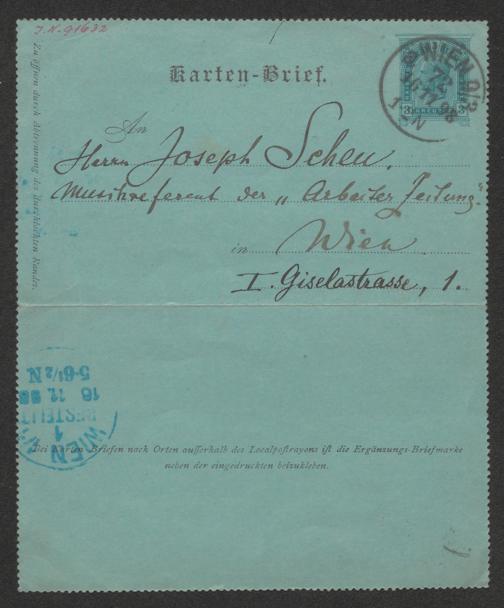 J.N. 91632
Karten-Brief.
WIEN
72
98
N
3
3
An
Herrn Joseph Scheu.
Musikreferent der „Arbeiter Zeitung"
in Wien
I. Giselastrasse, 1.
Zu öffnen durch Abtrennung des durchlochten Randes.
WIEN
1
BESTELLT
16 11 98
5-6½N
Bei Karten-Briefen nach Orten außerhalb des Localpostrayons ist die Ergänzungs-Briefmarke
neben der eingedruckten beizukleben.